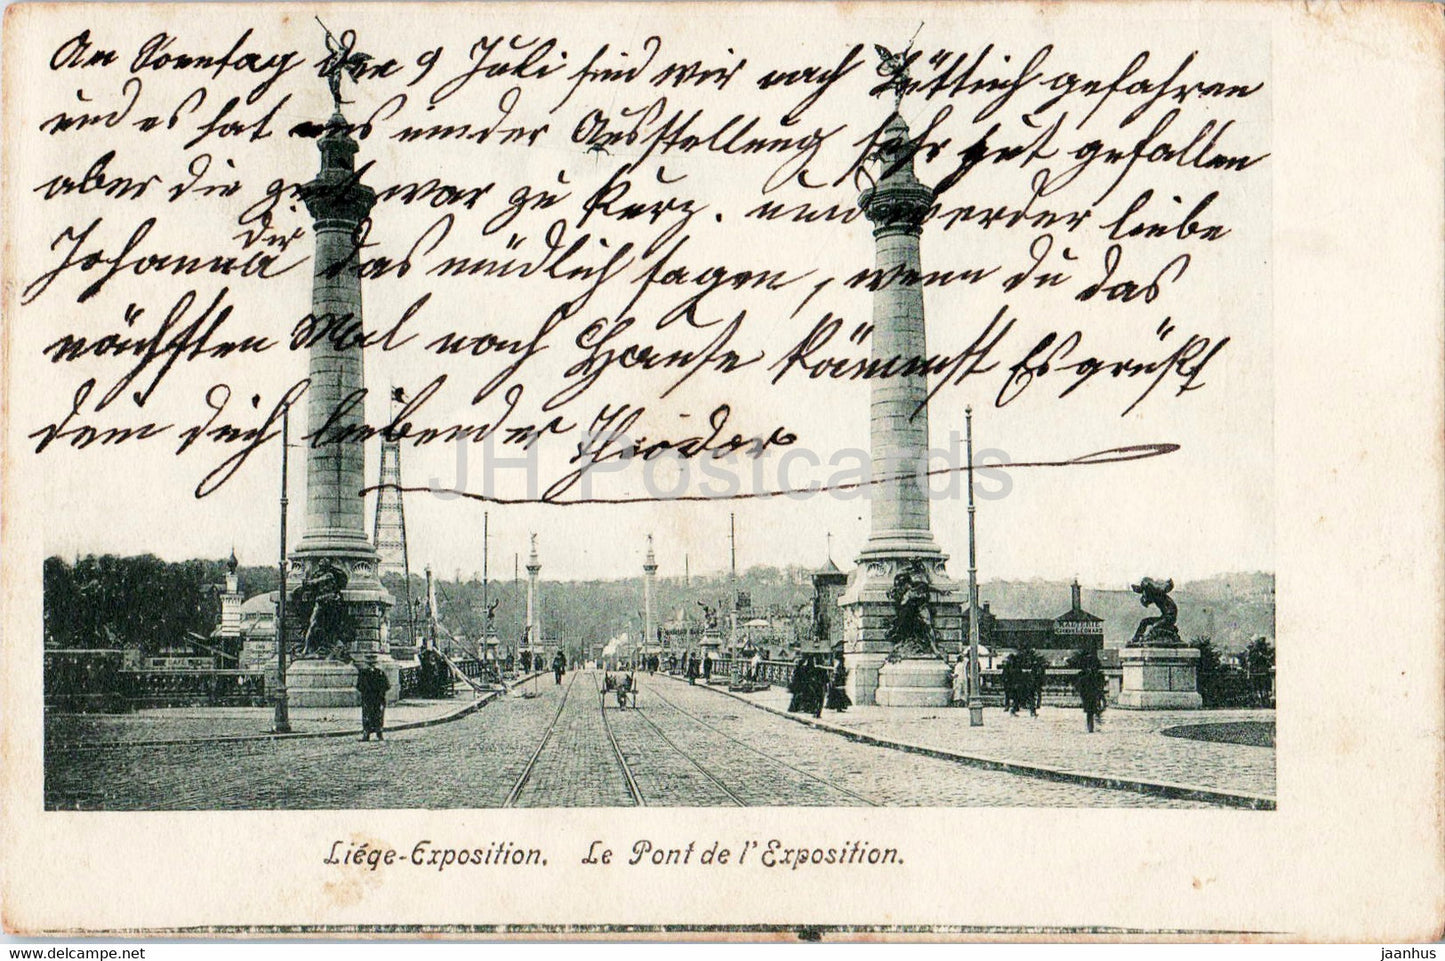 An Sonntag den 9 Juli sind wir nach Lüttich gefahren
und es hat uns in der Ausstellung sehr gut gefallen
aber die Zeit war zu kurz. und werde liebe
Johanna dir das mündlich sagen, wenn du das
nächsten Mal nach Hause kömmst Es grüßt
dein dich liebender Theodor
JH Postcards
Liége-Exposition. Le Pont de l'Exposition.
www.jhpostcard.com
jaanhus